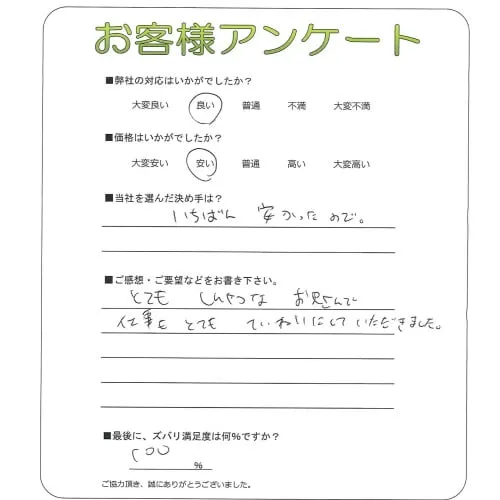 お客様アンケート
■弊社の対応はいかがでしたか？
大変良い 良い 普通 不満 大変不満
■価格はいかがでしたか？
大変安い 安い 普通 高い 大変高い
■当社を選んだ決め手は？
いちばん 安かったので。
■ご感想・ご要望などをお書き下さい。
とても しんせつな お兄さんで
仕事も とても ていねいにして いただきました。
■最後に、ズバリ満足度は何％ですか？
100
％
ご協力頂き、誠にありがとうございました。